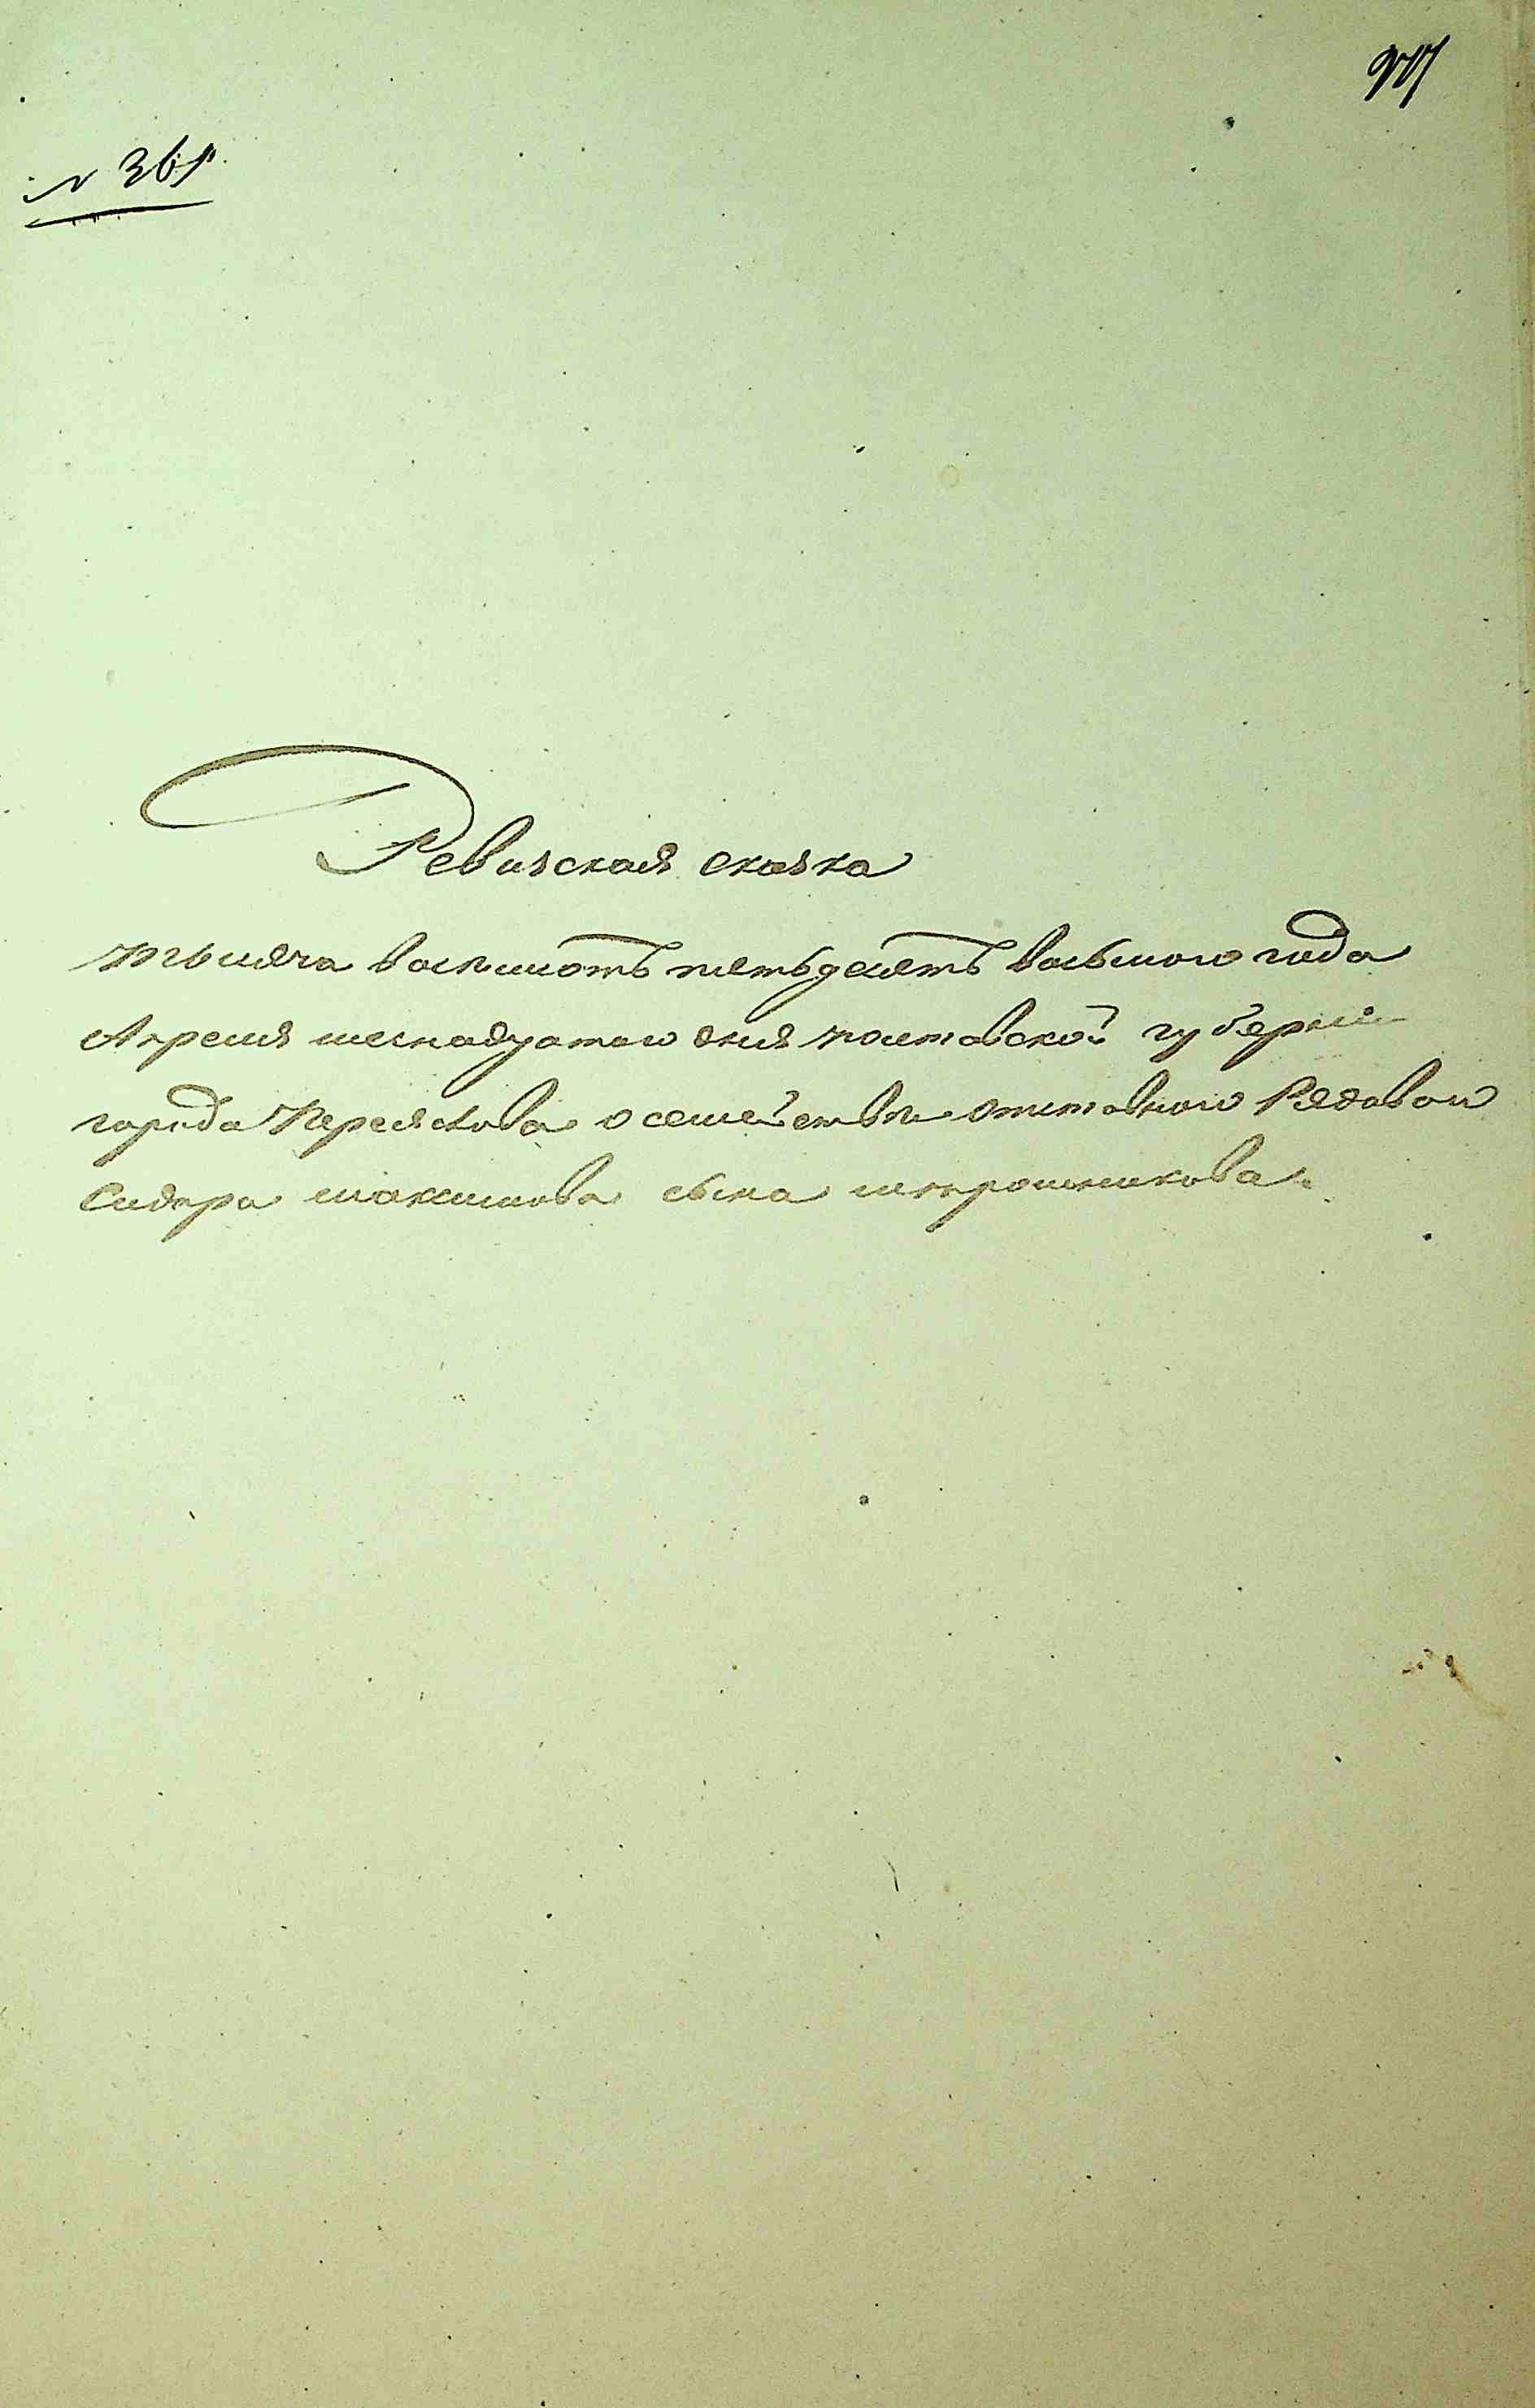 N 361
Ревизская сказка
тысяча восемьсотъ пятьдесятъ восьмого года
Апреля шеснадцатого дня полтавской губернии
города Переяслова о семействе отставного Рядового
Сидора максимова сына